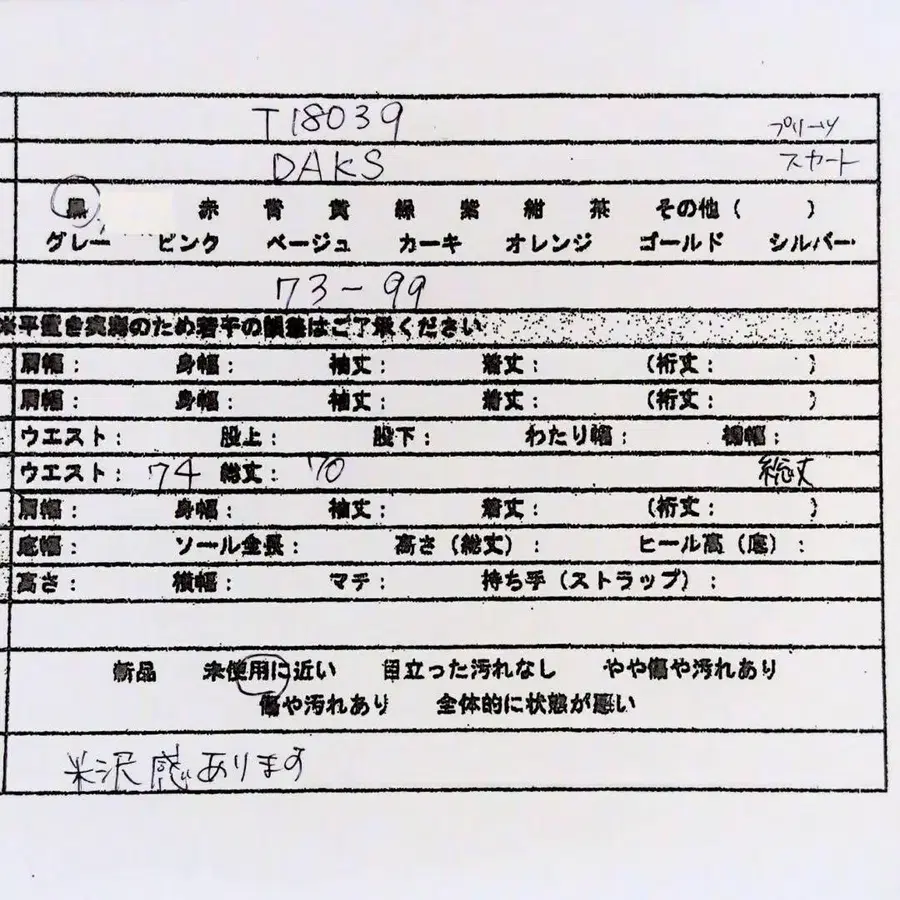 T18039
プリーツ
DAKS
スカート
黒 赤 青 黄 緑 紫 紺 茶 その他（ ）
グレー ピンク ベージュ カーキ オレンジ ゴールド シルバー
73-99
※平置き実寸のため若干の誤差はご了承ください
肩幅： 身幅： 袖丈： 着丈： （裄丈： ）
肩幅： 身幅： 袖丈： 着丈： （裄丈： ）
ウエスト： 股上： 股下： わたり幅： 裾幅：
ウエスト： 74 総丈： 70 総丈
肩幅： 身幅： 袖丈： 着丈： （裄丈： ）
底幅： ソール全長： 高さ（総丈）： ヒール高（底）：
高さ： 横幅： マチ： 持ち手（ストラップ）：
新品 未使用に近い 目立った汚れなし やや傷や汚れあり
傷や汚れあり 全体的に状態が悪い
光沢感あります